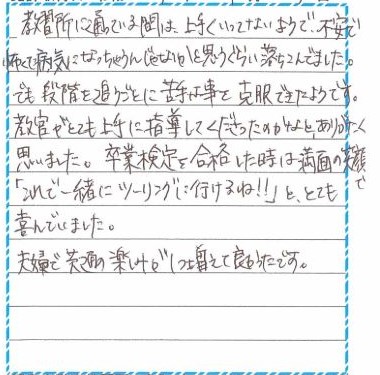 教習所に通っている間は、上手くいってないようで、不安で
怖くて病気になっちゃうんじゃないかと思うぐらい落ちこんでました。
でも段階を追うごとに苦手な事を克服できたようです。
教官がとても上手に指導してくださったのかなと、ありがたく
思いました。卒業検定を合格した時は満面の笑顔で
「これで一緒にツーリングに行けるね!!」と、とても
喜んでいました。
夫婦で共通の楽しみが1つ増えて良かったです。